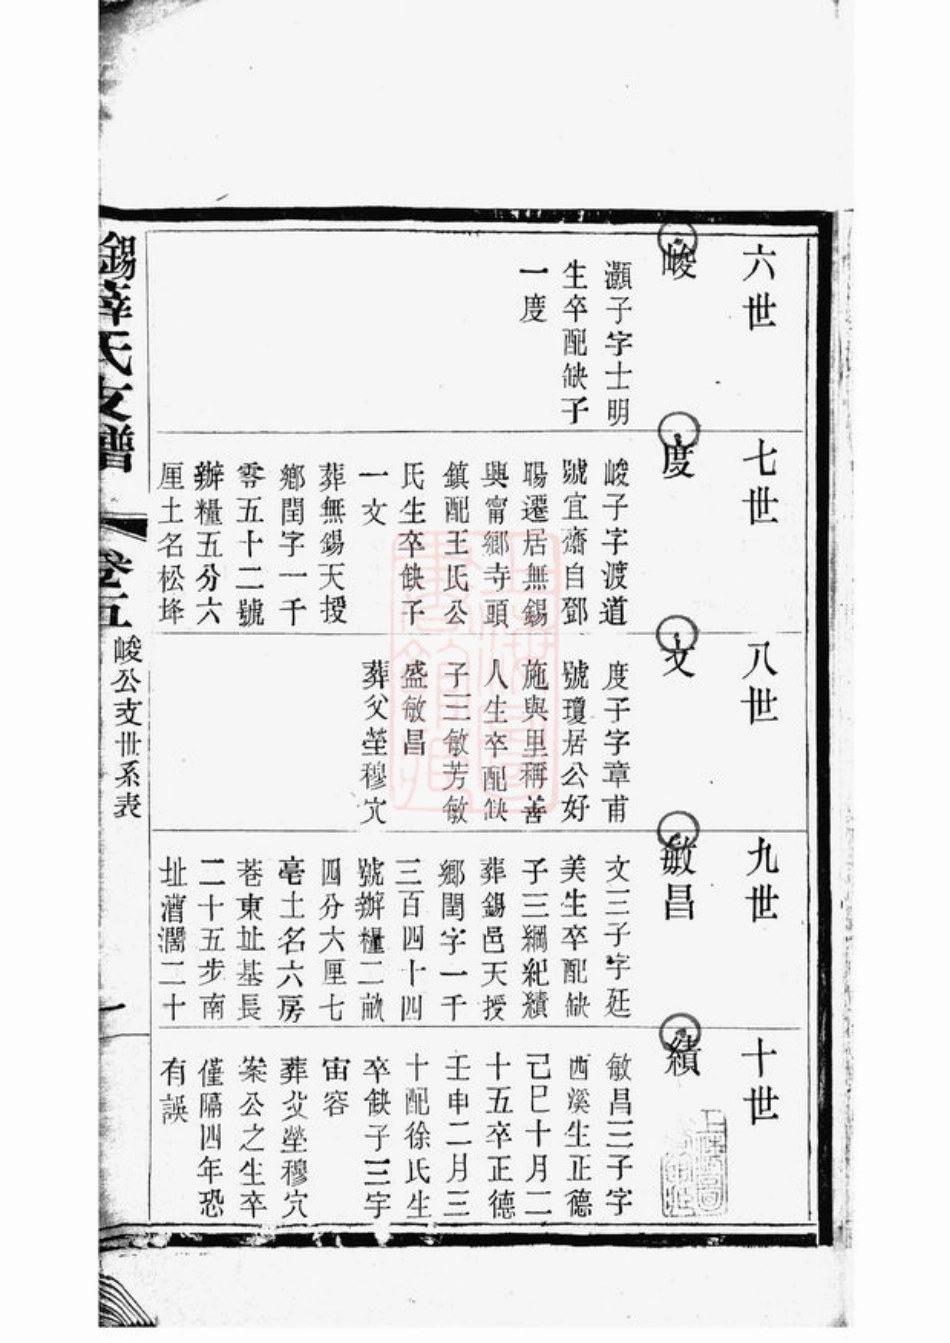 六世
峻
灝子字士明
生卒配缺子
一度
七世
度
峻子字渡道
號宜齋自鄧
暘遷居無錫
興甯鄉寺頭
鎮配王氏公
氏生卒缺子
一文
葬無錫天授
鄉閏字一千
零五十二號
辦糧五分六
厘土名松埄
八世
文
度子字章甫
號瓊居公好
施與里稱善
人生卒配缺
子三敏芳敏
盛敏昌
葬父塋穆穴
九世
敏昌
文三子字廷
美生卒配缺
子三綱紀績
葬錫邑天授
鄉閏字一千
三百四十四
號辦糧二畝
四分六厘七
毫土名六房
巷東址基長
二十五步南
址漕濶二十
十世
績
敏昌三子字
西溪生正德
己巳十月二
十五卒正德
壬申二月三
十配徐氏生
卒缺子三宇
宙容
葬父塋穆穴
案公之生卒
僅隔四年恐
有誤
錫薛氏支譜
卷五
峻公支世系表
一